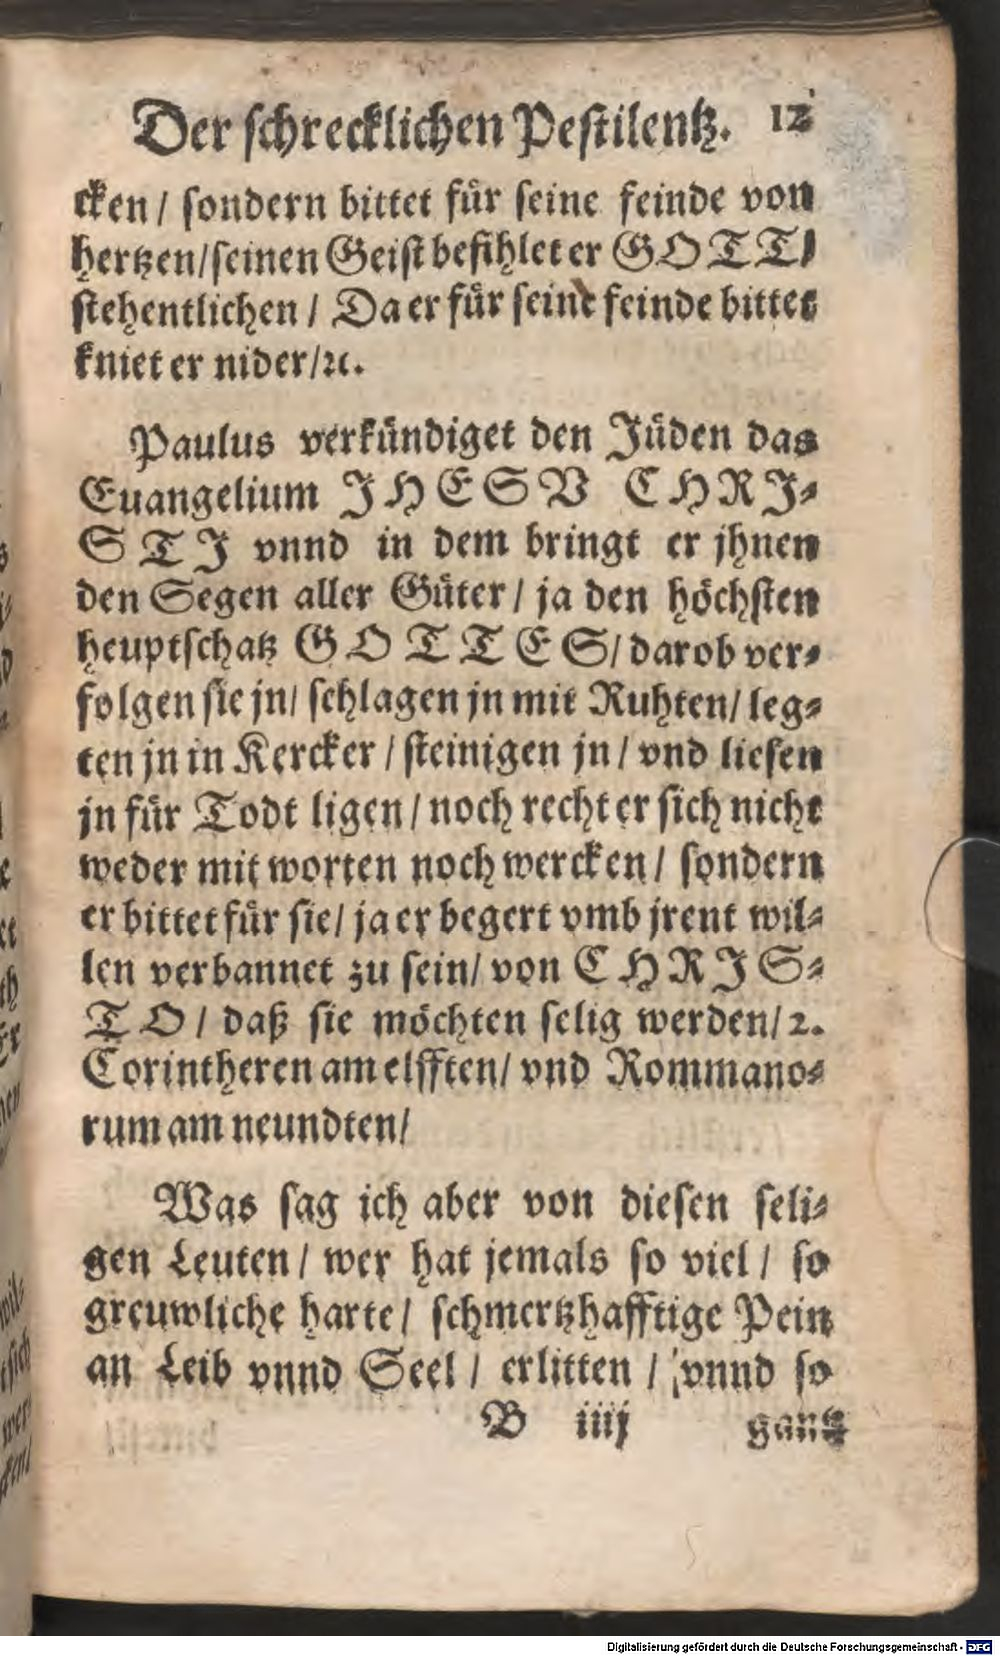 Der schrecklichen Pestilentz. 12
cken / sondern bittet für seine feinde von
hertzen/seinen Geist befihlet er GOTT/
stehentlichen / Da er für seine feinde bittet
kniet er nider/ꝛc.
Paulus verkündiget den Jüden das
Euangelium JHESV CHRJ-
STJ vnnd in dem bringt er jhnen
den Segen aller Güter / ja den höchsten
heuptschatz GOTTES/ darob ver-
folgen sie jn/ schlagen jn mit Ruhten/ leg-
ten jn in Kercker / steinigen jn / vnd liesen
jn für Todt ligen / noch recht er sich nicht
weder mit worten noch wercken / sondern
er bittet für sie/ ja er begert vmb jrent wil-
len verbannet zu sein/ von CHRJS-
TO / daß sie möchten selig werden/ 2.
Corintheren am elfften/ vnd Rommano-
rum am neundten/
Was sag ich aber von diesen seli-
gen Leuten / wer hat jemals so viel / so
greuwliche harte / schmertzhafftige Pein
an Leib vnnd Seel / erlitten / vnnd so
B iiij gantz
Digitalisierung gefördert durch die Deutsche Forschungsgemeinschaft - DFG